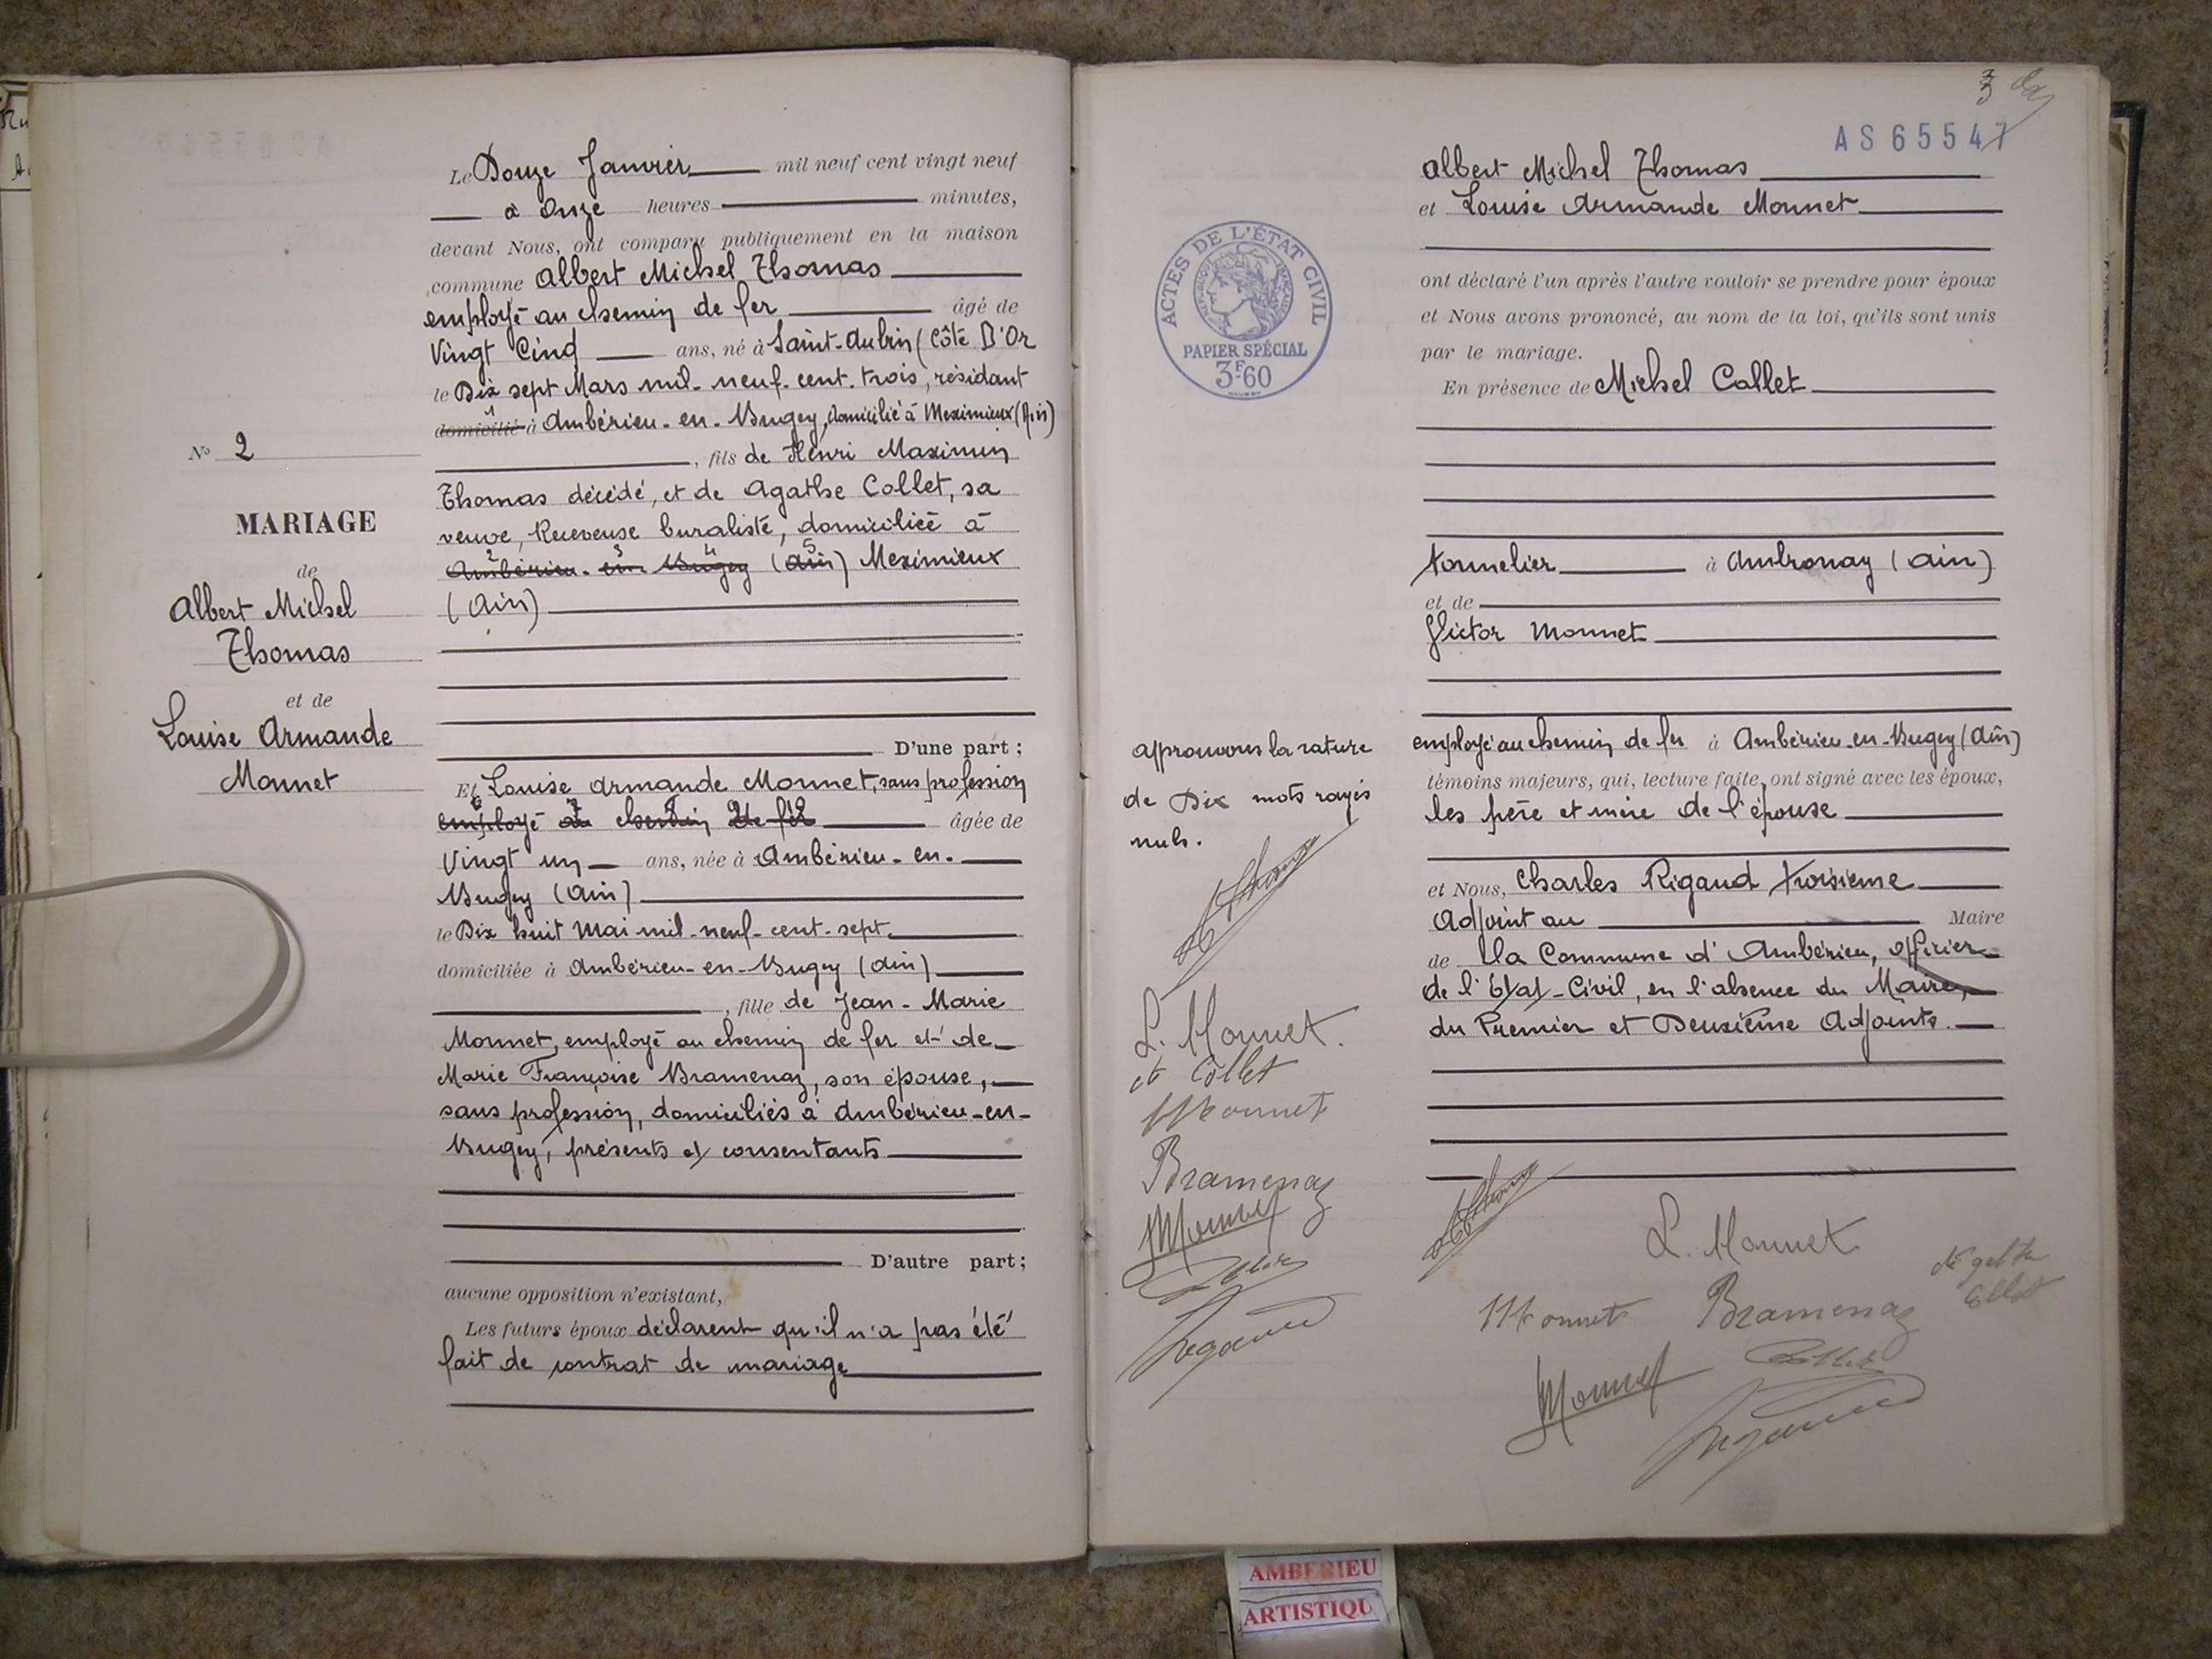 N° 2
MARIAGE
de
Albert Michel
Thomas
et de
Louise Armande
Monnet
Le Douze Janvier mil neuf cent vingt neuf
à Onze heures minutes,
devant Nous, ont comparu publiquement en la maison
commune Albert Michel Thomas
employé au chemin de fer âgé de
Vingt Cinq ans, né à Saint-Aubin (Côte D'Or
le Dix sept Mars mil-neuf-cent-trois, résidant
1
domicilié à Ambérieu-en-Bugey, domicilié à Meximieux (Ain)
, fils de Henri Maximin
Thomas décédé, et de Agathe Collet, sa
veuve, Receveuse buraliste, domiciliée à
2 3 4 5
Ambérieu-en-Bugey (Ain) Meximieux
(Ain)
D'une part ;
Et Louise Armande Monnet, sans profession
6 7 8 9 10
employé au chemin de fer âgée de
Vingt un ans, née à Ambérieu-en-
Bugey (Ain)
le Dix huit Mai mil-neuf-cent-sept
domiciliée à Ambérieu-en-Bugey (Ain)
, fille de Jean-Marie
Monnet, employé au chemin de fer et de
Marie Françoise Bramenaz, son épouse,
sans profession, domiciliés à Ambérieu-en-
Bugey, présents et consentants
D'autre part ;
aucune opposition n'existant,
Les futurs époux déclarent qu'il n'a pas été
fait de contrat de mariage
3
AS 65547
ACTES DE L'ÉTAT CIVIL
PAPIER SPÉCIAL
3F60
Albert Michel Thomas
et Louise Armande Monnet
ont déclaré l'un après l'autre vouloir se prendre pour époux
et Nous avons prononcé, au nom de la loi, qu'ils sont unis
par le mariage.
En présence de Michel Collet
tonnelier à Ambronay (Ain)
et de
Victor Monnet
employé au chemin de fer à Ambérieu-en-Bugey (Ain)
témoins majeurs, qui, lecture faite, ont signé avec les époux,
les père et mère de l'épouse
et Nous, Charles Rigaud troisième
Adjoint au Maire
de la Commune d'Ambérieu, officier
de l'Etat-Civil, en l'absence du Maire,
du Premier et Deuxième Adjoints.
approuvons la rature
de Dix mots rayés
nuls.
L. Monnet
Collet
Monnet
Bramenaz
Monnet
L. Monnet
Monnet
Bramenaz
Collet
Monnet
AMBERIEU
ARTISTIQU